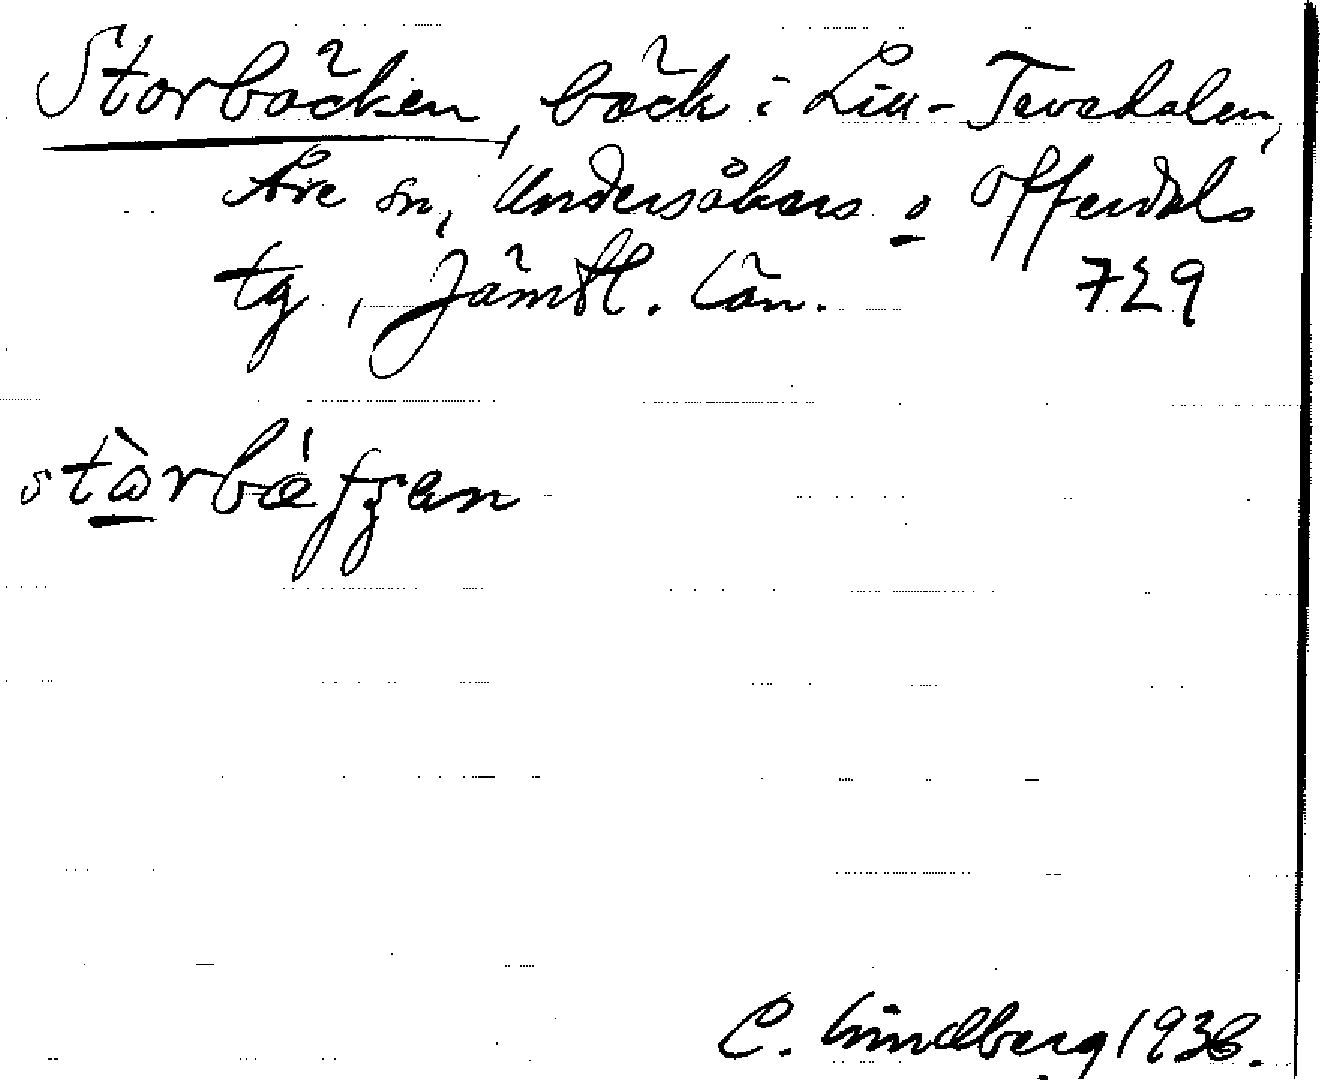 Storbäcken, bäck i Lill-Tevedalen,
Åre sn, Undersåkers o Offerdals
tg, Jämtl. län. 729
stòrbǽkʒen
C. Lindberg 1936.